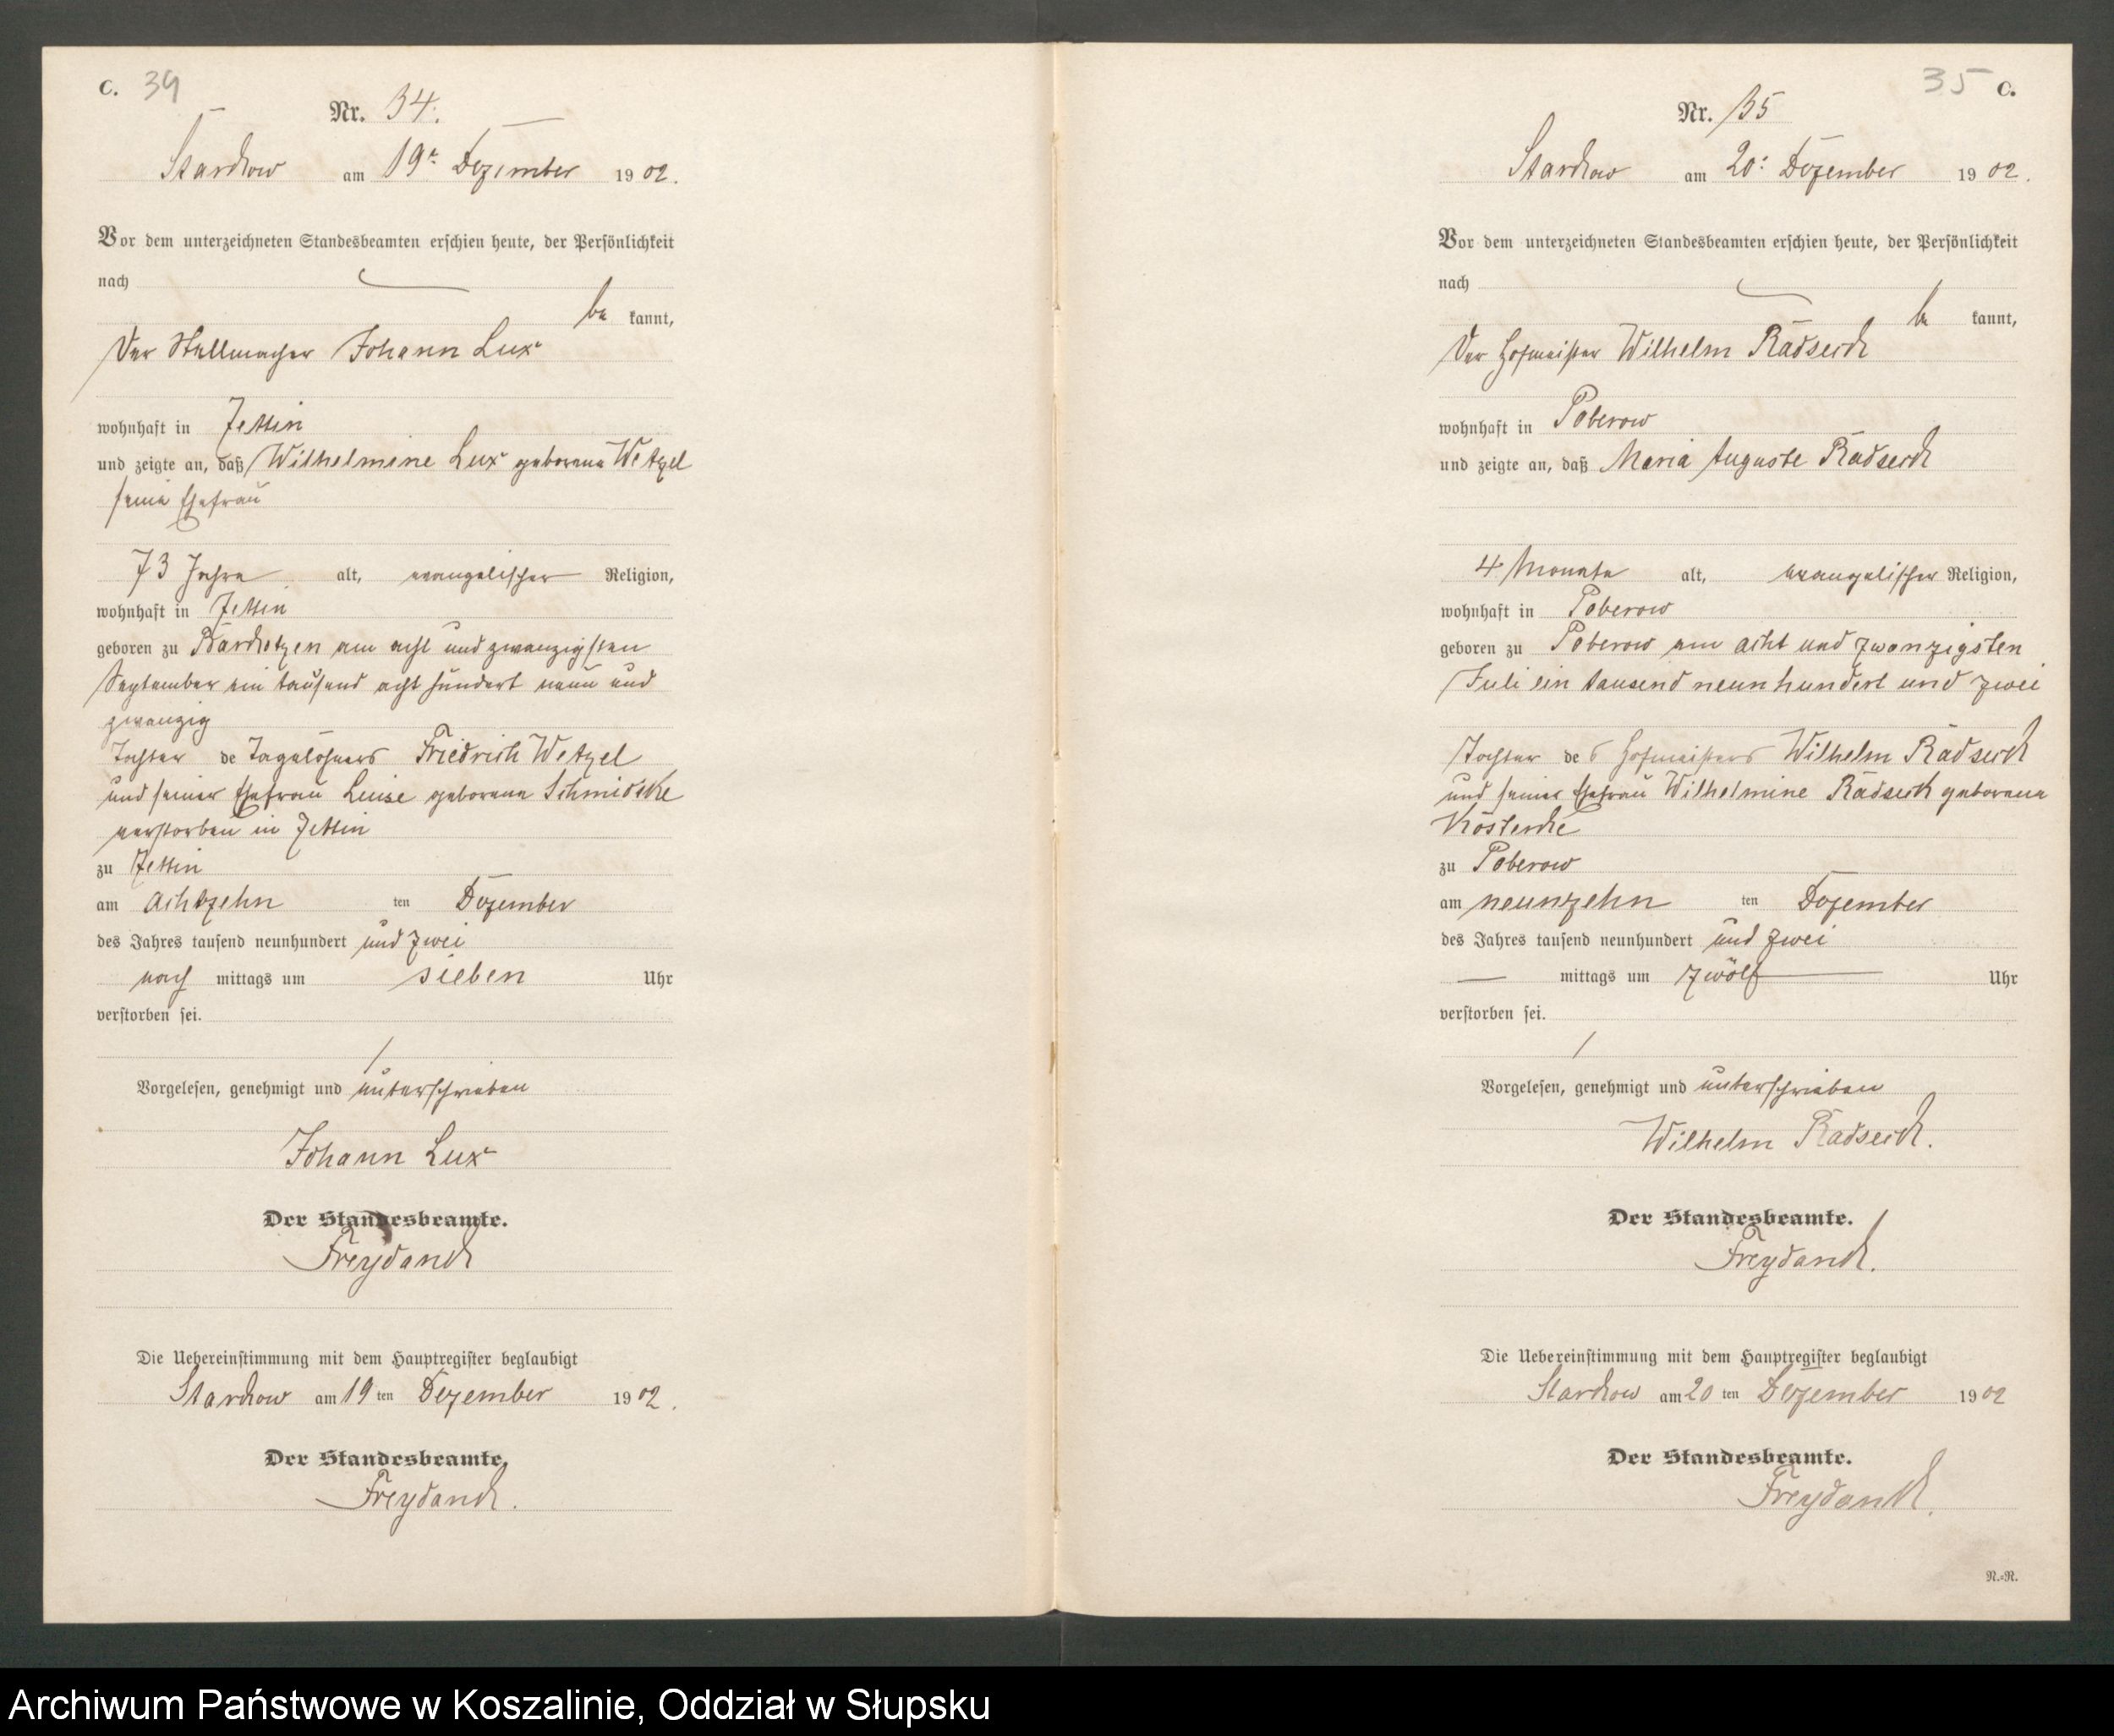 C. 39
Nr. 34.
Starckow am 19t. Dezember 1902.
Vor dem unterzeichneten Standesbeamten erschien heute, der Persönlichkeit
nach
be kannt,
Der Stellmacher Johann Lux
wohnhaft in Jettin
und zeigte an, daß Wilhelmine Lux geborene Wetzel
seine Ehefrau
73 Jahre alt, evangelischer Religion,
wohnhaft in Jettin
geboren zu am acht und zwanzigsten
September ein tausend acht hundert neun und
zwanzig
Tochter de Tagelöhners Friedrich Wetzel
und seiner Ehefrau Luise geborene Schmidtke
verstorben in Jettin
zu Jettin
am achtzehn ten Dezember
des Jahres tausend neunhundert und zwei
nach mittags um sieben Uhr
verstorben sei.
Vorgelesen, genehmigt und unterschrieben
Johann Lux
Der Standesbeamte.
Freydanck
Die Uebereinstimmung mit dem Hauptregister beglaubigt
Starckow am 19 ten Dezember 1902.
Der Standesbeamte.
Freydanck.
35 C.
Nr. 35
Starckow am 20t. Dezember 1902.
Vor dem unterzeichneten Standesbeamten erschien heute, der Persönlichkeit
nach
be kannt,
Der Hofmeister Wilhelm Radseck
wohnhaft in Poberow
und zeigte an, daß Maria Auguste Radseck
4 Monate alt, evangelischer Religion,
wohnhaft in Poberow
geboren zu Poberow am acht und zwanzigsten
Juli ein tausend neunhundert und zwei
Tochter des Hofmeisters Wilhelm Radseck
und seiner Ehefrau Wilhelmine Radseck geborene
zu Poberow
am neunzehn ten Dezember
des Jahres tausend neunhundert und zwei
— mittags um zwölf Uhr
verstorben sei.
Vorgelesen, genehmigt und unterschrieben
Wilhelm Radseck.
Der Standesbeamte.
Freydanck.
Die Uebereinstimmung mit dem Hauptregister beglaubigt
Starckow am 20 ten Dezember 1902
Der Standesbeamte.
Freydanck.
N.-N.
Archiwum Państwowe w Koszalinie, Oddział w Słupsku